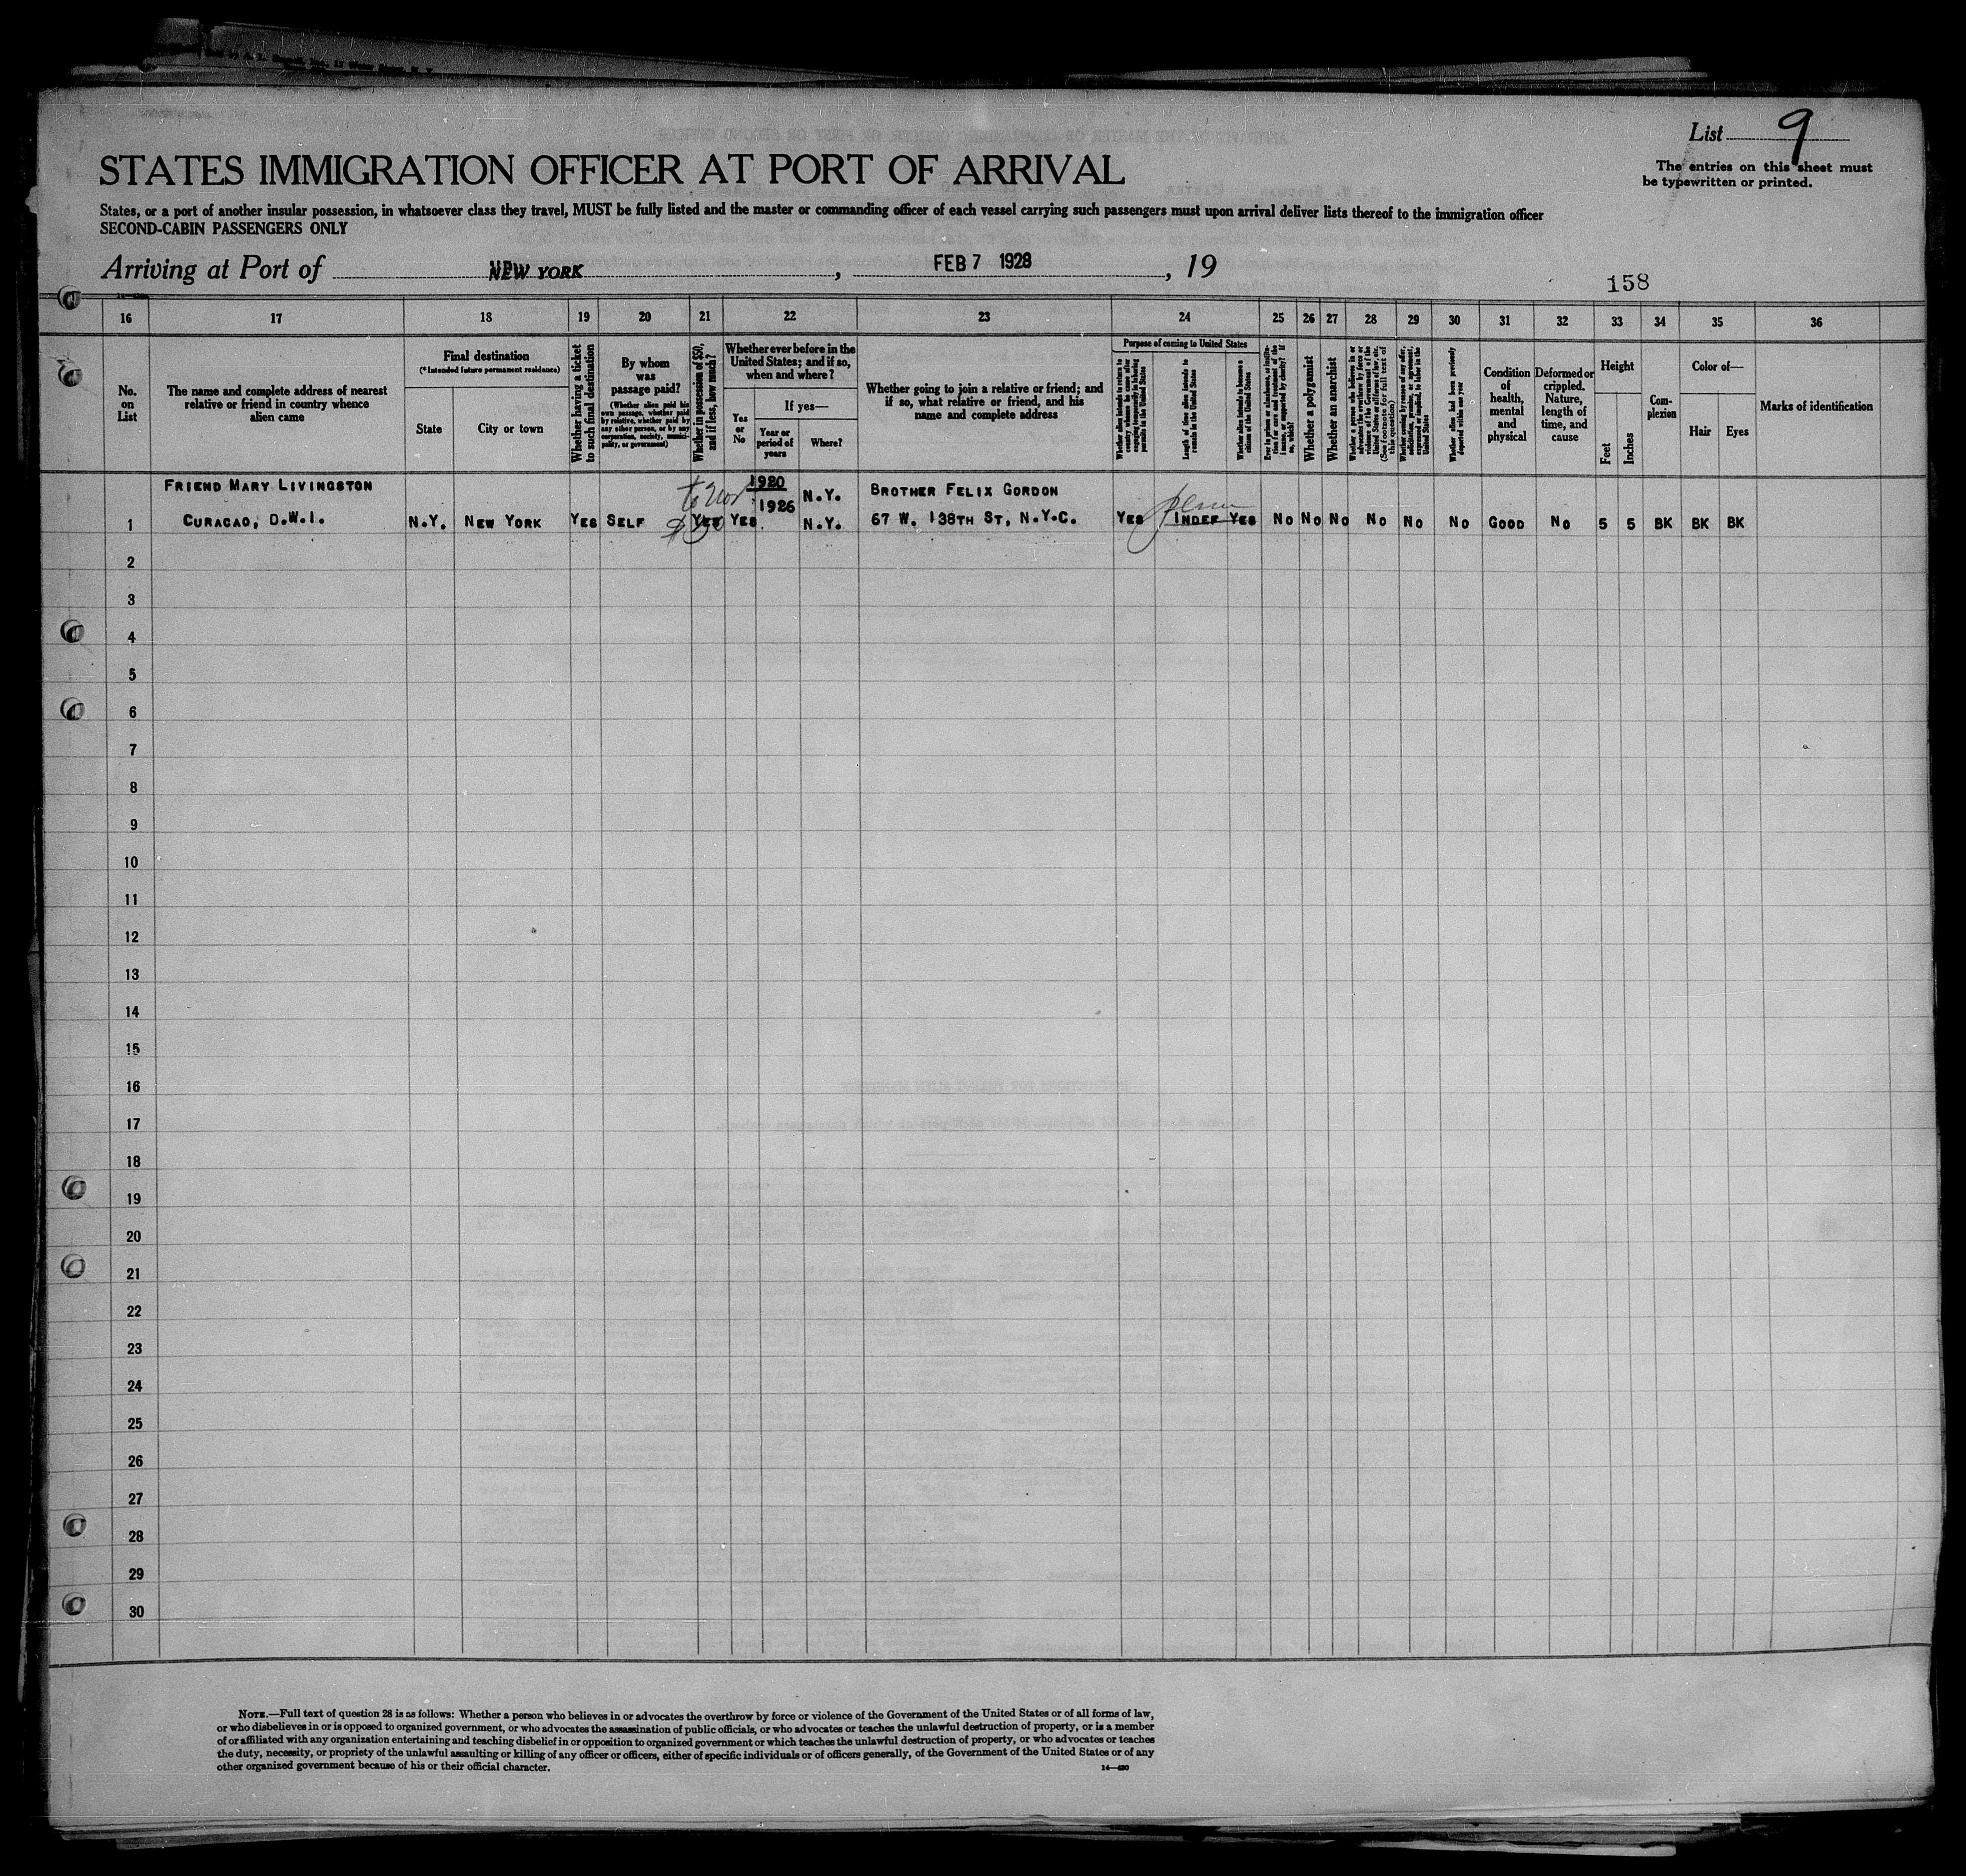 List 9
The entries on this sheet must
be typewritten or printed.
STATES IMMIGRATION OFFICER AT PORT OF ARRIVAL
States, or a port of another insular possession, in whatsoever class they travel, MUST be fully listed and the master or commanding officer of each vessel carrying such passengers must upon arrival deliver lists thereof to the immigration officer
SECOND-CABIN PASSENGERS ONLY
Arriving at Port of NEW YORK, FEB 7 1928, 19
158
16 17 18 19 20 21 22 23 24 25 26 27 28 29 30 31 32 33 34 35 36
No. on List
The name and complete address of nearest relative or friend in country whence alien came
Final destination
(*Intended future permanent residence)
State
City or town
Whether having a ticket to such final destination
By whom was passage paid?
(Whether alien paid his own passage, whether paid by relative, whether paid by any other person, or by any corporation, society, municipality, or government)
Whether in possession of $50, and if less, how much?
Whether ever before in the United States; and if so, when and where?
Yes or No
If yes—
Year or period of years
Where?
Whether going to join a relative or friend; and if so, what relative or friend, and his name and complete address
Purpose of coming to United States
Length of time alien intends to remain in the United States
Whether alien intends to become a citizen of the United States
Whether a polygamist
Whether an anarchist
(See footnote for full text of this question)
Whether alien had been previously deported within one year
Condition of health, mental and physical
Deformed or crippled. Nature, length of time, and cause
Height
Feet
Inches
Complexion
Color of—
Hair
Eyes
Marks of identification
FRIEND MARY LIVINGSTON 1920 N.Y. BROTHER FELIX GORDON
1 CURACAO, D.W.I. N.Y. NEW YORK YES SELF $50 YES YES 1926 N.Y. 67 W. 138TH ST, N.Y.C. YES INDEF YES NO NO NO NO NO NO GOOD NO 5 5 BK BK BK
2
3
4
5
6
7
8
9
10
11
12
13
14
15
16
17
18
19
20
21
22
23
24
25
26
27
28
29
30
NOTE.—Full text of question 28 is as follows: Whether a person who believes in or advocates the overthrow by force or violence of the Government of the United States or of all forms of law,
or who disbelieves in or is opposed to organized government, or who advocates the assassination of public officials, or who advocates or teaches the unlawful destruction of property, or is a member
of or affiliated with any organization entertaining and teaching disbelief in or opposition to organized government or which teaches the unlawful destruction of property, or who advocates or teaches
the duty, necessity, or propriety of the unlawful assaulting or killing of any officer or officers, either of specific individuals or of officers generally, of the Government of the United States or of any
other organized government because of his or their official character.
14—430